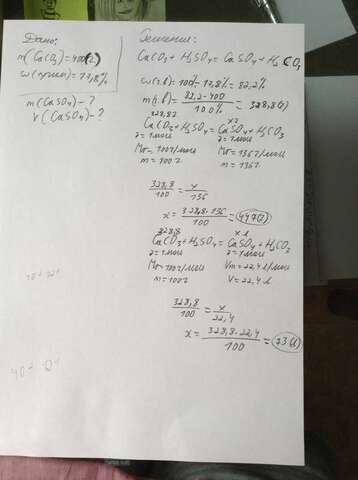 Дано:
m(CaCO₃)=400(г)
w(прим)=17,8%
m(CaSO₄)-?
V(CaSO₄)-?
Решение:
CaCO₃+H₂SO₄=CaSO₄+H₂CO₃
w(ч.в)=100%-17,8%=82,2%
m(ч.в)=82,2·400/100%=328,8(г)
328,8г xг
CaCO₃+H₂SO₄=CaSO₄+H₂CO₃
ν=1моль ν=1моль
Mr=100г/моль Mr=136г/моль
m=100г m=136г
328,8/100=x/136
x=328,8·136/100=447(г)
328,8 xл
CaCO₃+H₂SO₄=CaSO₄+H₂CO₃
ν=1моль ν=1моль
Mr=100г/моль Vm=22,4л/моль
m=100г V=22,4л
328,8/100=x/22,4
x=328,8·22,4/100=73(л)